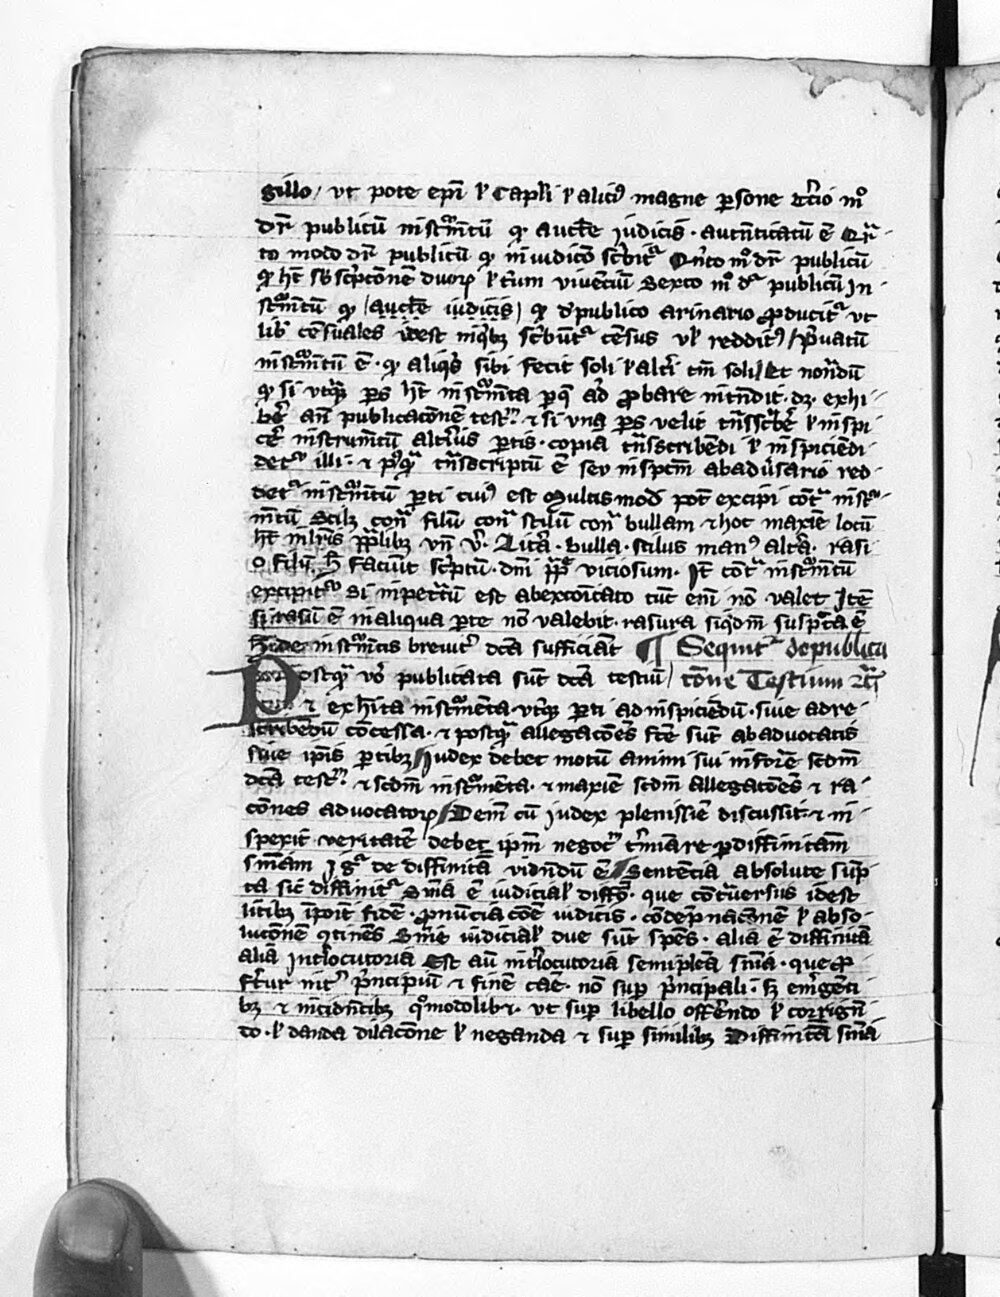 gillo / vt pote epi l' Capli l' alici9 magne psone tcio mo
dr publicu instmtu q auctte iudicis · autnticatu e Qr
to modo dr publicu q in iudico scbit Qnto mo dr publicu
q ht sbscpcone duor l' tium viveciu Sexto mo dr publicu In
stmtu q / Auctte iudicis / q d publico arinario pducit vt
lib cesuales idest in qbz scbunt cesus vl reddit9 / Pvatu
instmtu e · q aliqs sibi fecit soli l' altri tm soli / Et nondu
q si vtq ps ht instmta p q ad pbare intndit · dz · exhi
be an publicacone test · & si vna ps velit tnsscbe l' inspi
ce instrumtu altius ptis · copia tnsscribedi l' inspiciedi
det illi · & pq tnsscriptu e seu inspcm ab adusario red
det instmtu pti cui9 est Multis mod pot excipi cot inst
mtu Scilz con filu con stilu con bullam & hoc maxie locu
ht in lris pplibz vn v. Lita · bulla · stilus man9 altra · rasi
o filu · h faciut scptu · dni pp viciosum · It cot instmtu
excipit Si inpetitu est ab excoicato tuc eni no valet Ite
si rasu e in aliqua pte no valebit · rasura siqdm suspta e
H de instmtis breuit dca sufficiat ¶ Sequit de publica
Postq vo publicata sut dca testiu / cone Testium
& exhita instmenta vtiq pti ad inspiciedu · siue ad re
scribedu cocessa · & postq allegacoes fte sut ab aduocatis
siue ipis ptibz Iudex debet motu animi sui infore scdm
dca test · & scdm instmenta · & maxie scdm allegacoes & ra
cones aduocator Dem cu iudex plenissie discussit · & in
spexit veritate debet ipm negoc tmiare p diffinitam
sniam Ig de diffinita vidndu e Sentencia absolute sup
ta sic diffinit Snia e iudicial diffo · que cotuersus idest
litibz ipoit fide · pnuciacoe iudicis · codepnacone l' abso
lucone qtines Snie iudicial due sut spes · alia e diffinita
alia Intlocutoria Est au intlocutoria semiplea snia · que p
fertur int pncipiu & fine cae · no sup pncipali · sz emgeti
bz & incidntibz qmodolibz · vt sup libello offerendo l' corrign
do · l' danda dilacone l' neganda & sup similibz Diffinita snia